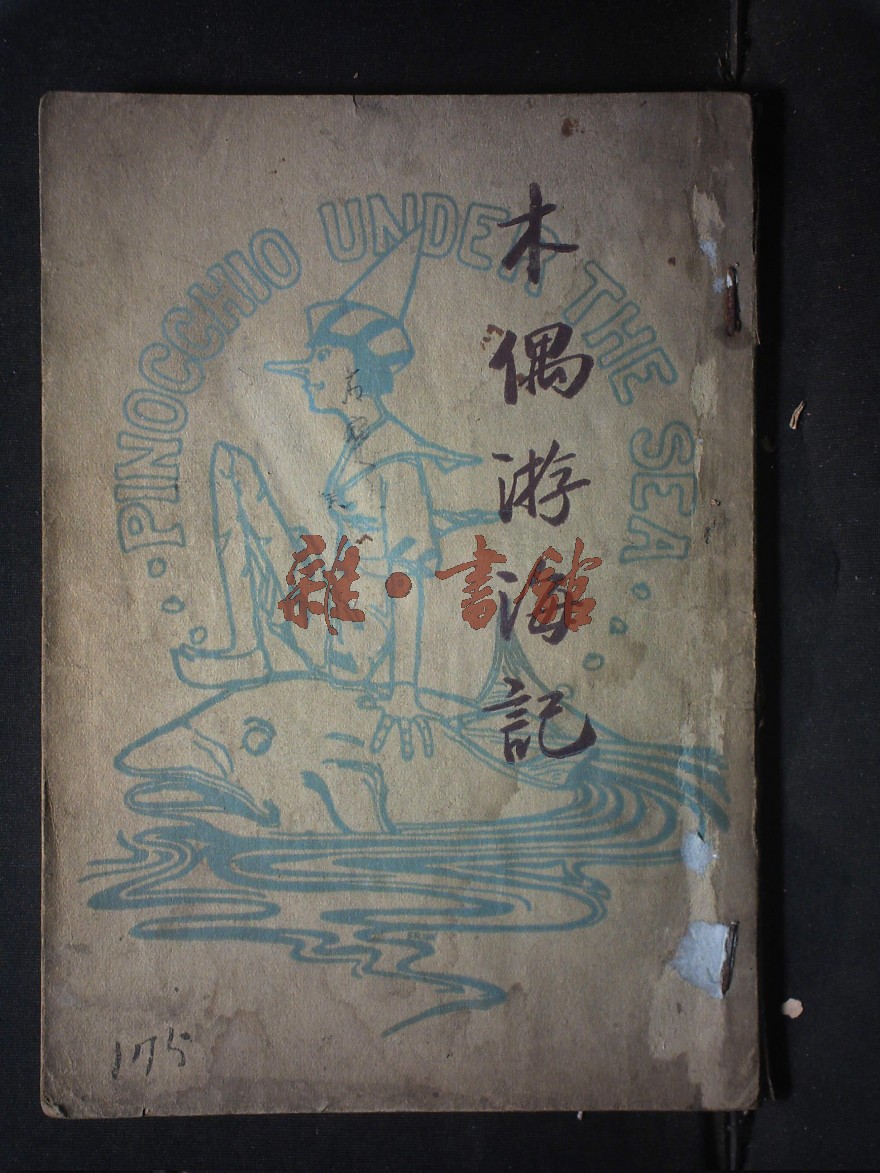 PINOCCHIO UNDER THE SEA
木偶游海記
雜·書館
175